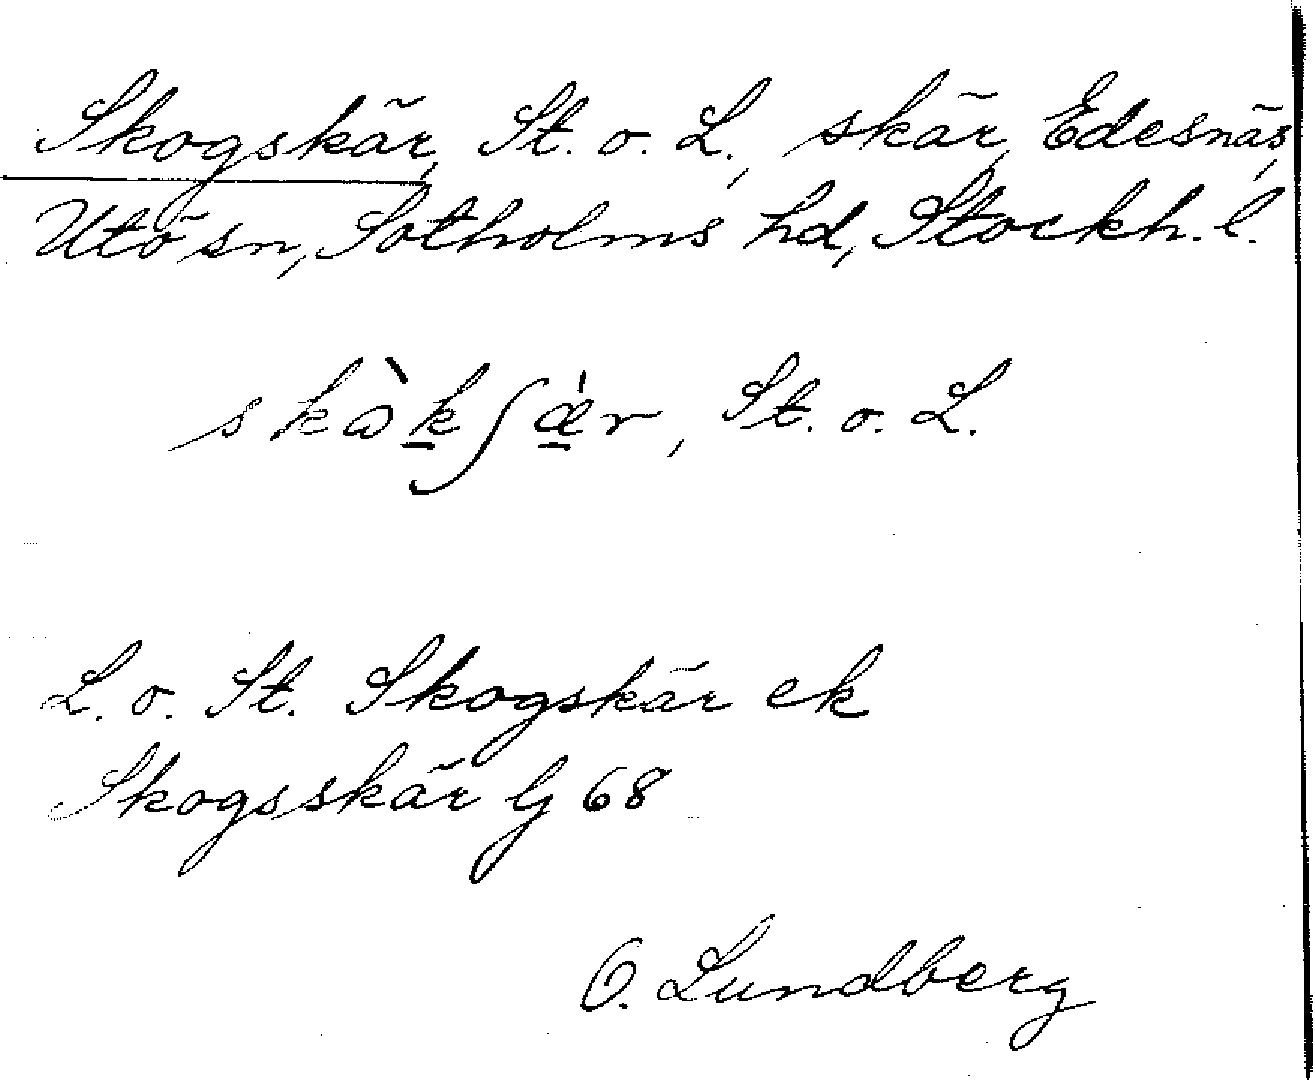 Skogskär, St. o. L., skär, Edesnäs,
Utö sn, Sotholms hd, Stockh. l.
skὼkʃǽr, St. o. L.
L. o. St. Skogskär ek
Skogsskär G 68
O. Lundberg